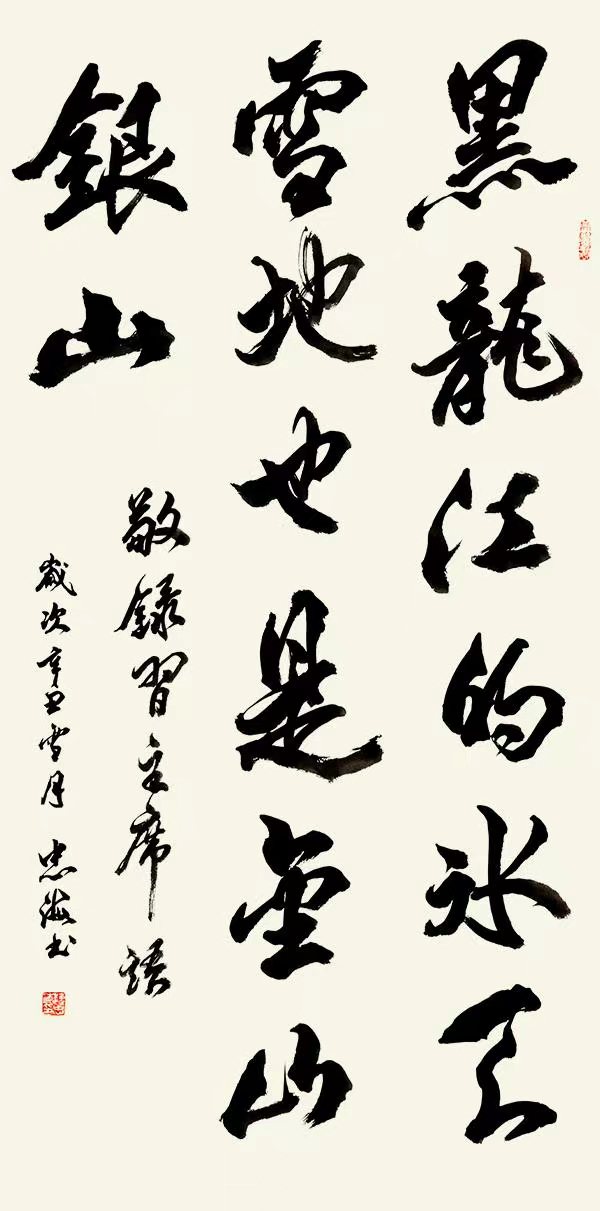 黑龍江的冰天
雪地也是金山
銀山
敬録習主席語
歲次辛丑雪月 忠海书